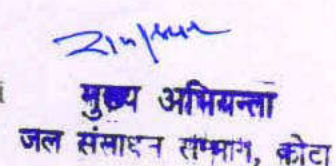 मुख्य अभियन्ता
जल संसाधन सम्भाग, कोटा